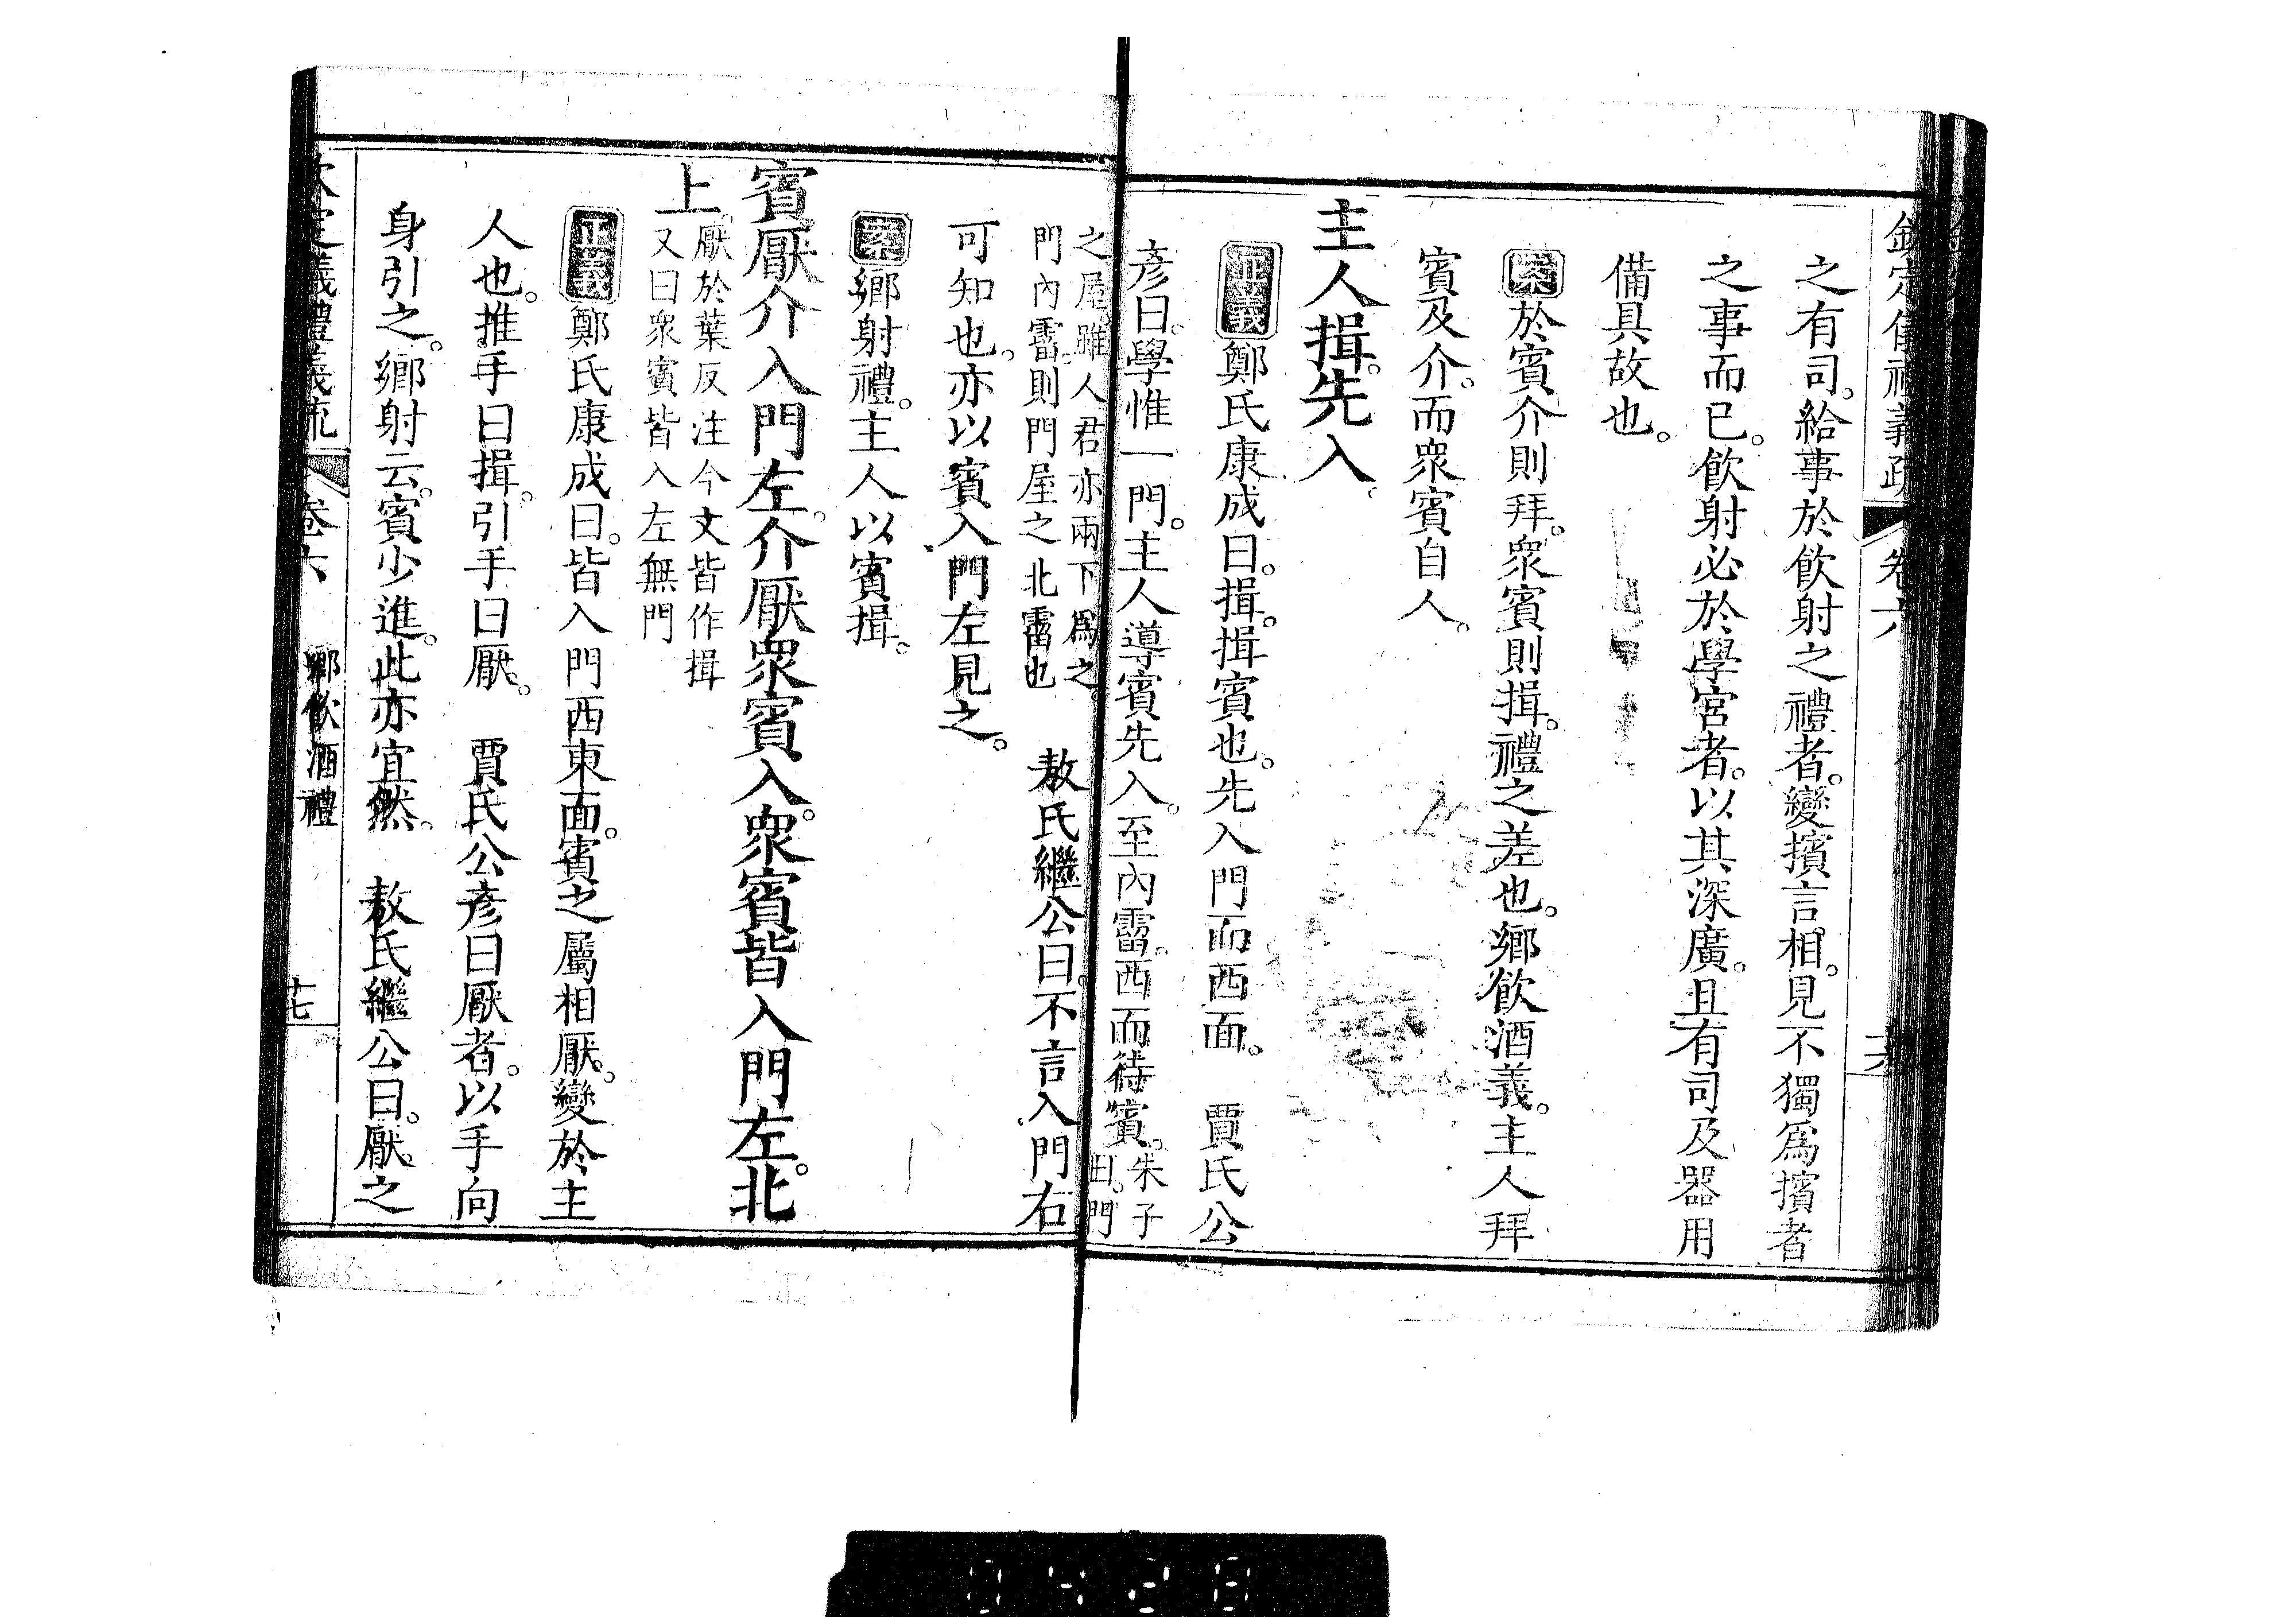 欽定儀禮義疏　卷六
之有司。給事於飲射之禮者。變擯言相。見不獨爲擯者
之事而已。飲射必於學宮者。以其深廣。且有司及器用
備具故也。
案於賓介則拜。衆賓則揖。禮之差也。鄉飲酒義。主人拜
賓及介。而衆賓自入。
主人揖。先入。
正義鄭氏康成曰。揖。揖賓也。先入門而西面。　賈氏公
彥曰。學惟一門。主人導賓先入。至內霤。西面待賓。朱子
曰。門
之屋。雖人君亦兩下爲之。
門內霤。則門屋之北霤也
敖氏繼公曰。不言入門右
可知也。亦以賓入門左見之。
案鄉射禮。主人以賓揖。
賓厭介入門左。介厭衆賓入。衆賓皆入門左。北
上。厭於葉反注今文皆作揖
又曰衆賓皆入左無門
正義鄭氏康成曰。皆入門西東面。賓之屬相厭。變於主
人也。推手曰揖。引手曰厭。　賈氏公彥曰厭者。以手向
身引之。鄉射云。賓少進。此亦宜然。　敖氏繼公曰。厭之
欽定儀禮義疏　卷六　鄉飲酒禮　十七